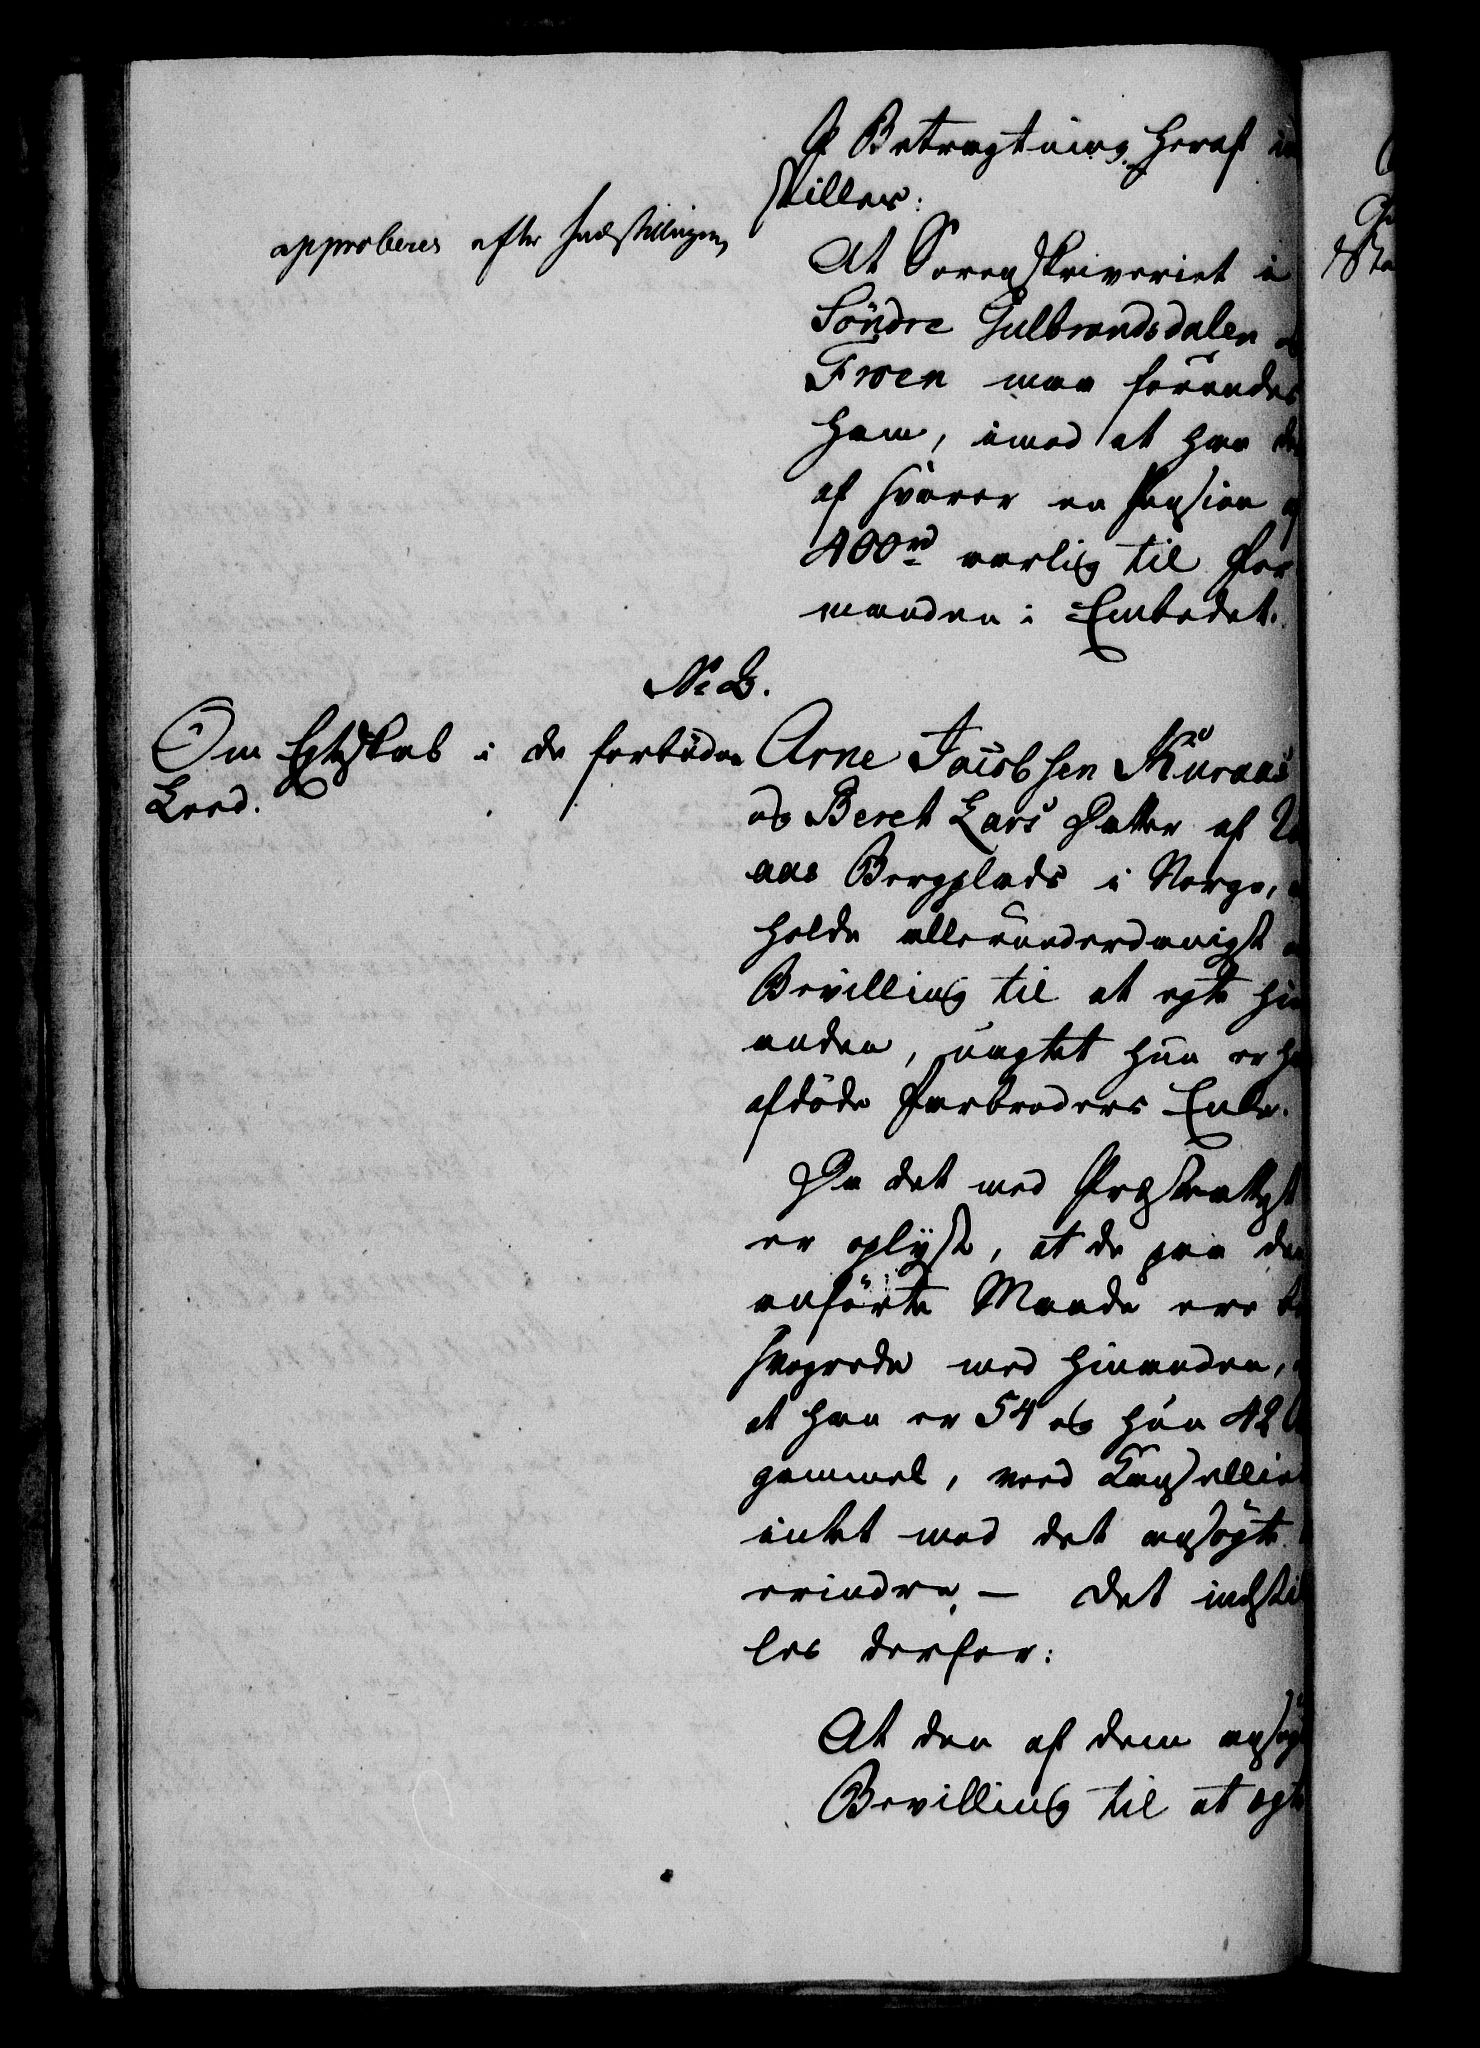 I Betragtning heraf in
stilles:
approberes efter Indstillingen
At Sorenskriveriet i
Söndre Gulbrandsdalen
Froen maa forundes
ham, imod at han der
af svarer en Pension af
400 rd aarlig til For
manden i Embedet.
No 2.
Om Egteskab i de forbudne
Leed.
Arne Jacobsen Kuraas
og Beret Lars Datter af
aas Bergplads i Norge,
holde allerunderdanigst
Bevilling til at egte hin
anden, uagtet hun er ha
afdöde Farbroders Enke.
Da det med Præsteattest
er oplyst, at de paa den
anförte Maade ere be
svogrede med hinanden,
at han er 54 og hun 42
gammel, veed Cancelliet
intet mod det ansögte
erindre. — Det indstil
les derfor:
At den af dem ansøg
Bevilling til at egte